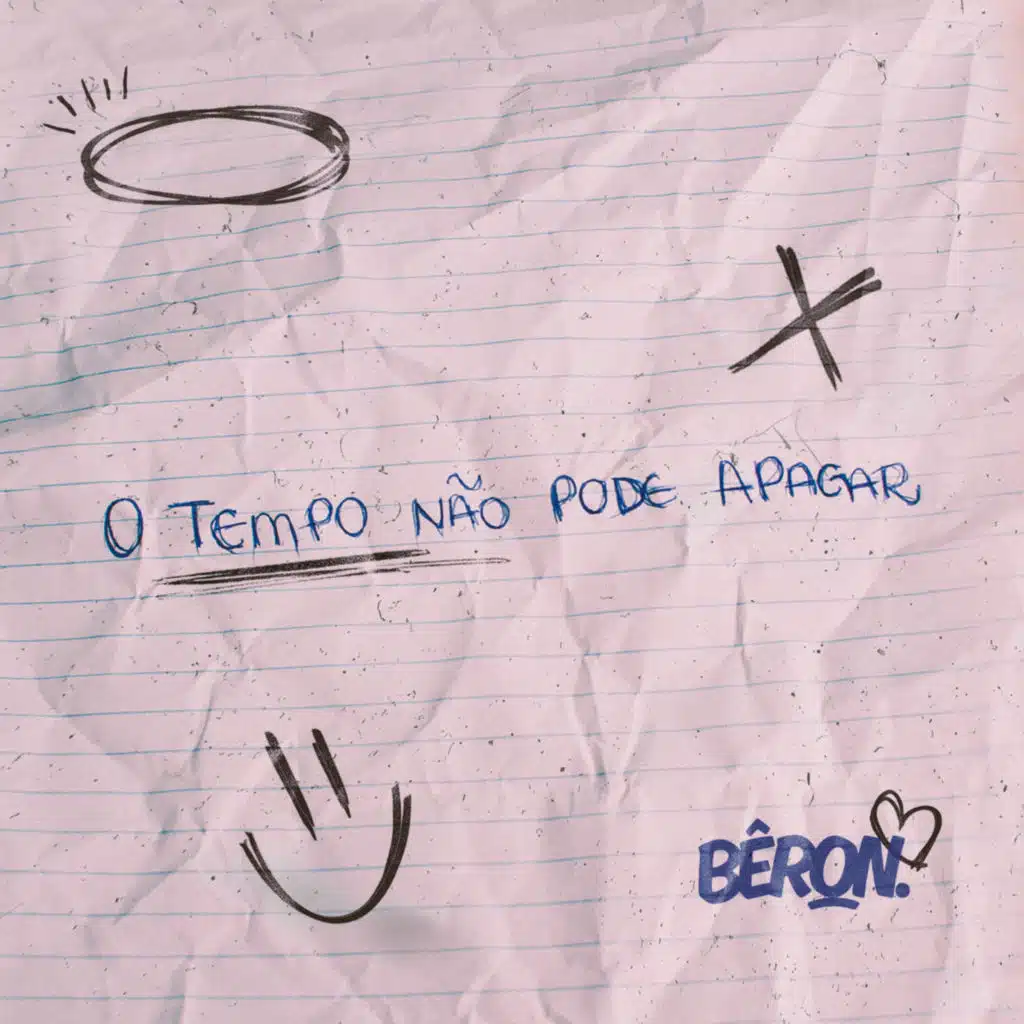 O TEMPO NÃO PODE APAGAR
BÊRON.